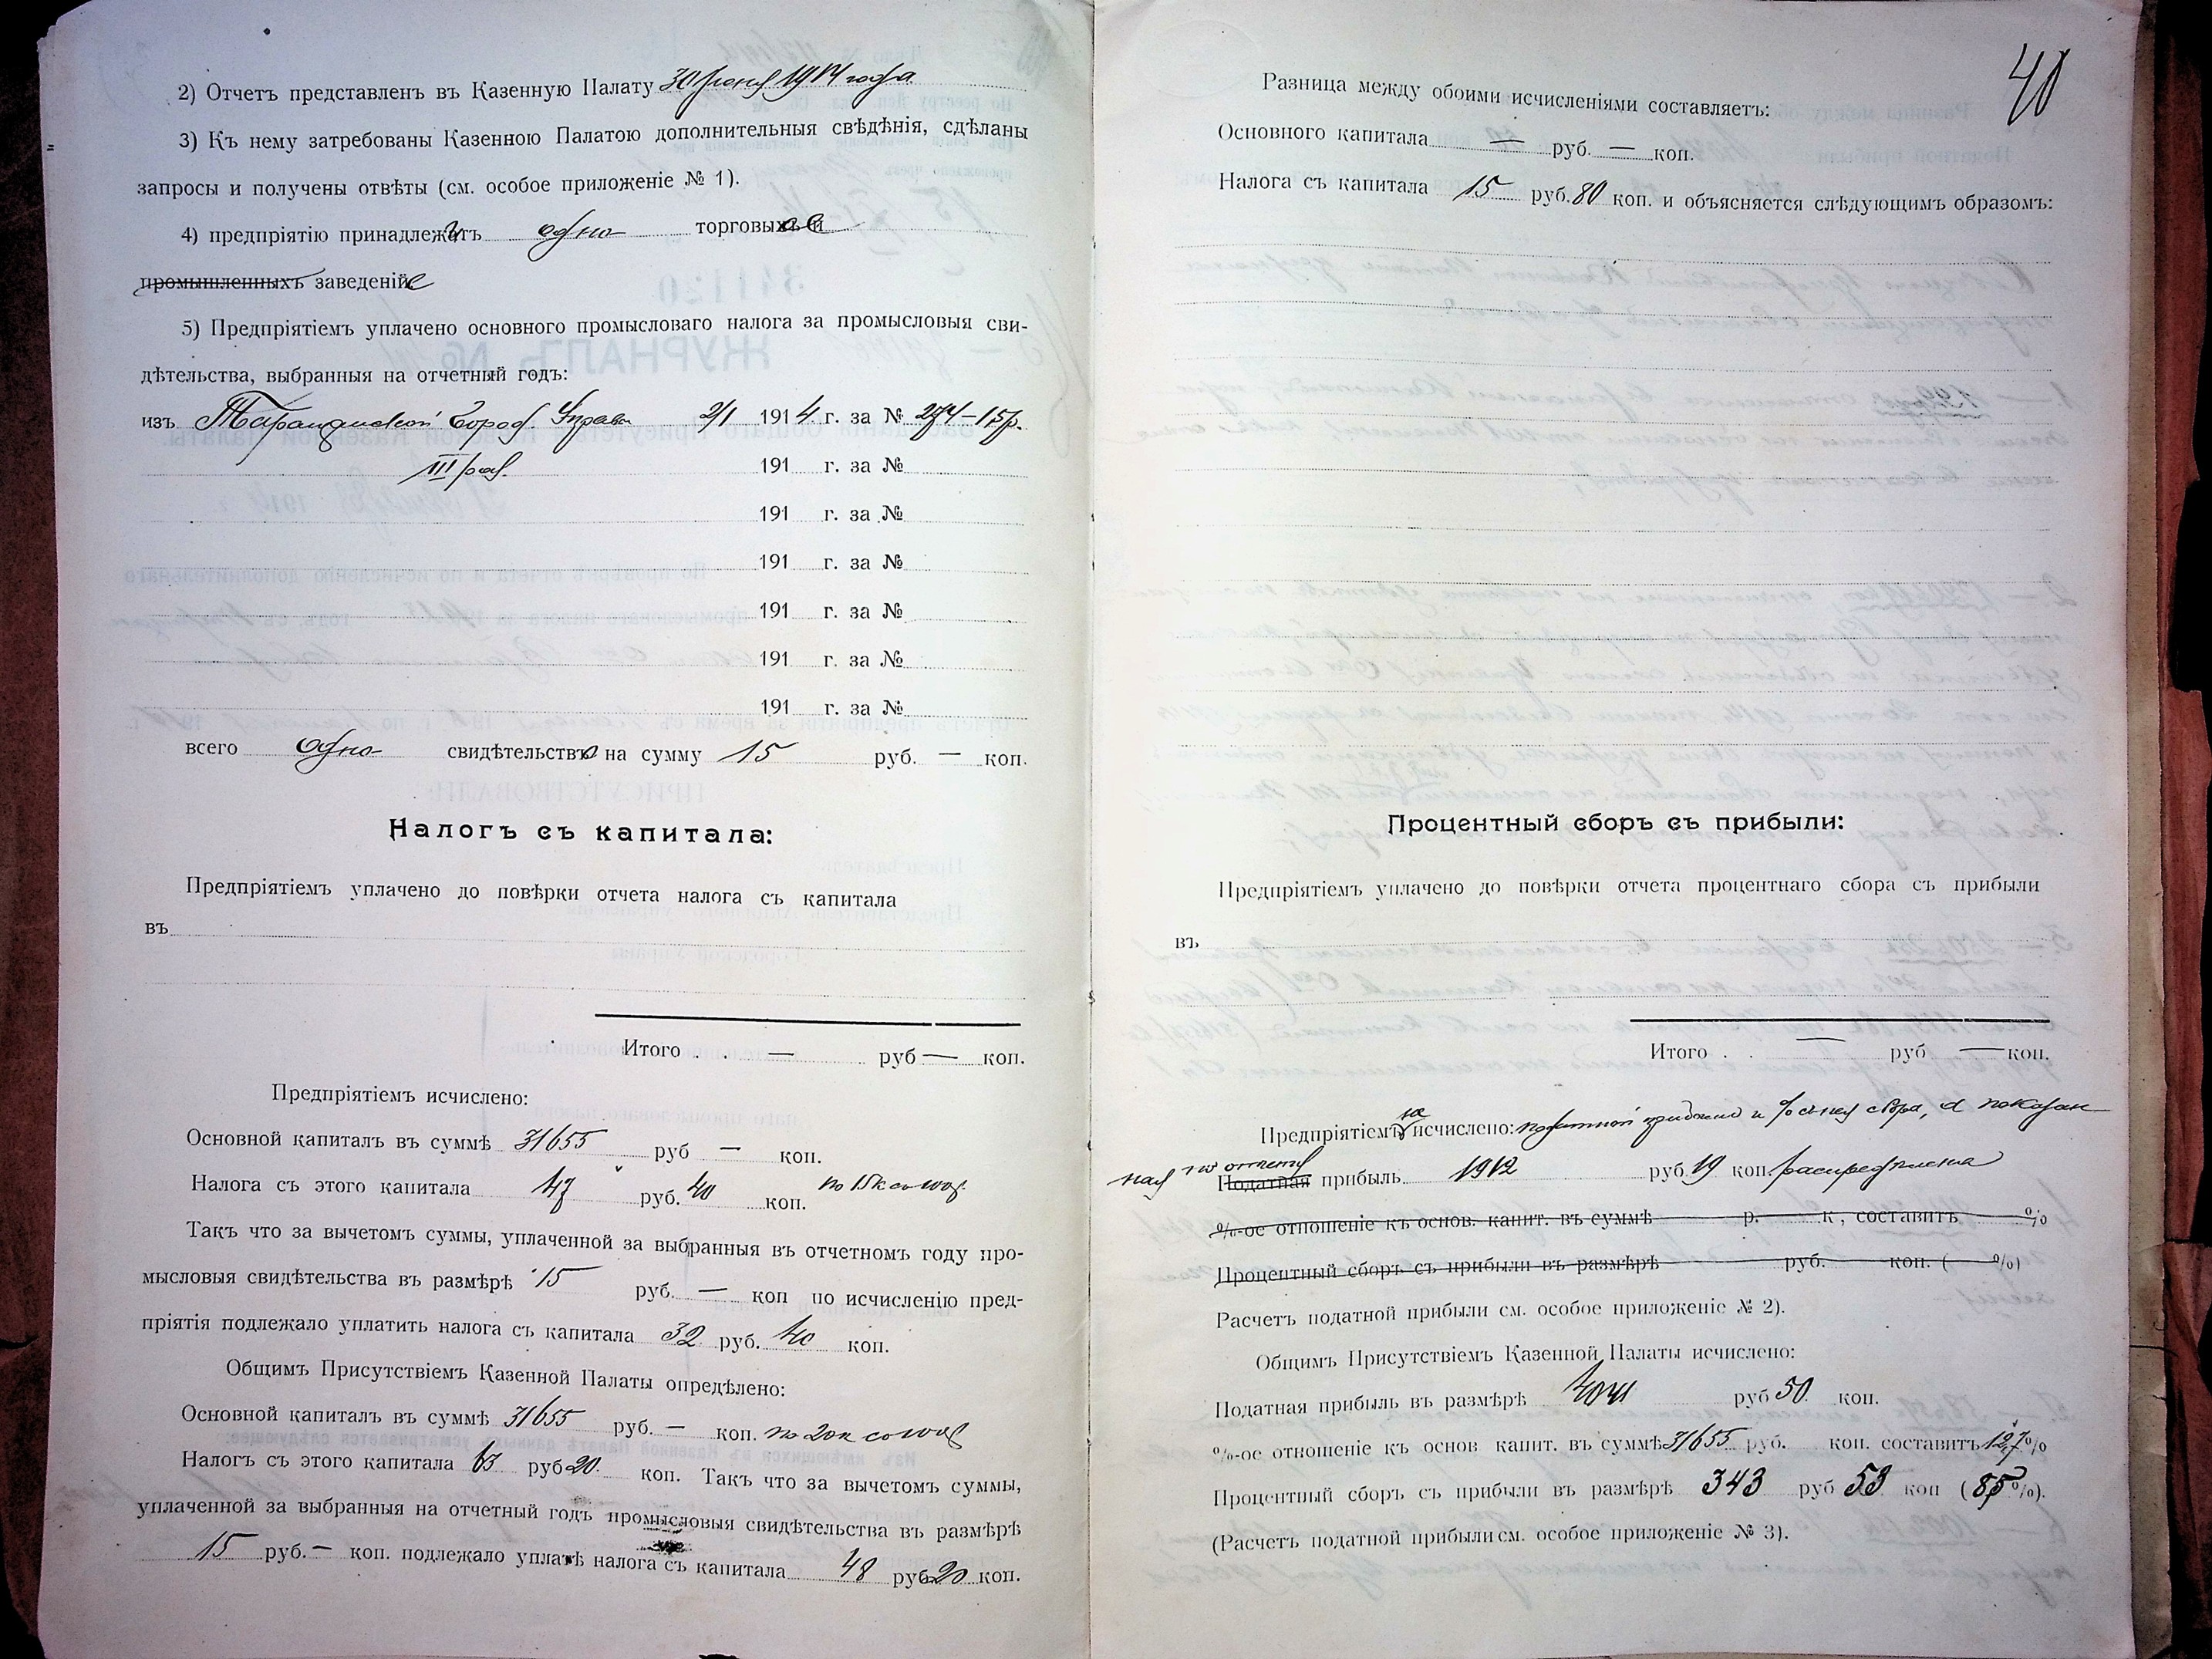 2) Отчетъ представленъ въ Казенную Палату 30 1914 года
3) Къ нему затребованы Казенною Палатою дополнительныя свѣдѣнія, сдѣланы
запросы и получены отвѣты (см. особое приложеніе № 1).
4) предпріятію принадлежитъ одно торговыхъ и
промышленныхъ заведеніе
5) Предпріятіемъ уплачено основного промысловаго налога за промысловыя сви-
дѣтельства, выбранныя на отчетный годъ:
изъ Таращанской Город. Управы 2/I 1914 г. за № 274-15р.
III раз. 191 г. за №
191 г. за №
191 г. за №
191 г. за №
191 г. за №
191 г. за №
всего одно свидѣтельство на сумму 15 руб. — коп.
Налогъ съ капитала:
Предпріятіемъ уплачено до повѣрки отчета налога съ капитала
въ
Итого . . — руб — коп.
Предпріятіемъ исчислено:
Основной капиталъ въ суммѣ 31655 руб — коп.
Налога съ этого капитала 47 руб. 40 коп. по 15к со 100р.
Такъ что за вычетомъ суммы, уплаченной за выбранныя въ отчетномъ году про-
мысловыя свидѣтельства въ размѣрѣ 15 руб. — коп по исчисленію пред-
пріятія подлежало уплатить налога съ капитала 32 руб. 40 коп.
Общимъ Присутствіемъ Казенной Палаты опредѣлено:
Основной капиталъ въ суммѣ 31655 руб. — коп. по 20к со 100р
Налогъ съ этого капитала 63 руб 20 коп. Такъ что за вычетомъ суммы,
уплаченной за выбранныя на отчетный годъ промысловыя свидѣтельства въ размѣрѣ
15 руб. — коп. подлежало уплатѣ налога съ капитала 48 руб 20 коп.
40
Разница между обоими исчисленіями составляетъ:
Основного капитала — руб. — коп.
Налога съ капитала 15 руб. 80 коп. и объясняется слѣдующимъ образомъ:
Процентный сборъ съ прибыли:
Предпріятіемъ уплачено до повѣрки отчета процентнаго сбора съ прибыли
въ
Итого . . — руб — коп.
Предпріятіемъ не исчислено: податной прибыли и % съ нея сбора, а показан
ная по отчету Податная прибыль 1912 руб. 19 коп. распредѣлена
%-ое отношеніе къ основ. капит. въ суммѣ р. к., составитъ %
Процентный сборъ съ прибыли въ размѣрѣ руб. коп. ( %)
Расчетъ податной прибыли см. особое приложеніе № 2).
Общимъ Присутствіемъ Казенной Палаты исчислено:
Податная прибыль въ размѣрѣ руб 50 коп.
%-ое отношеніе къ основ капит. въ суммѣ 31655 руб. коп. составитъ 12,7%
Процентный сборъ съ прибыли въ размѣрѣ 343 руб 53 коп (8,5%).
(Расчетъ податной прибыли см. особое приложеніе № 3).